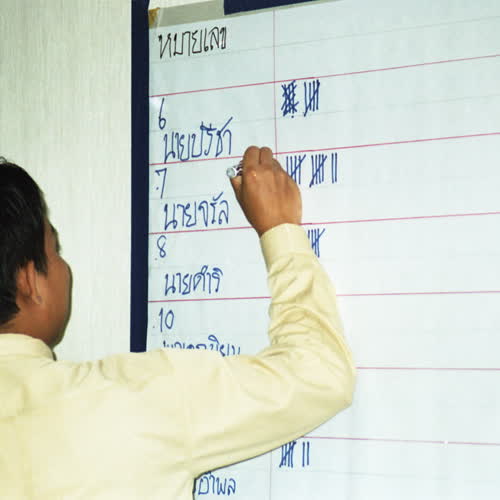 หมายเลข
6
นายปรีชา
7
นายจรัล
8
นายดำริ
10